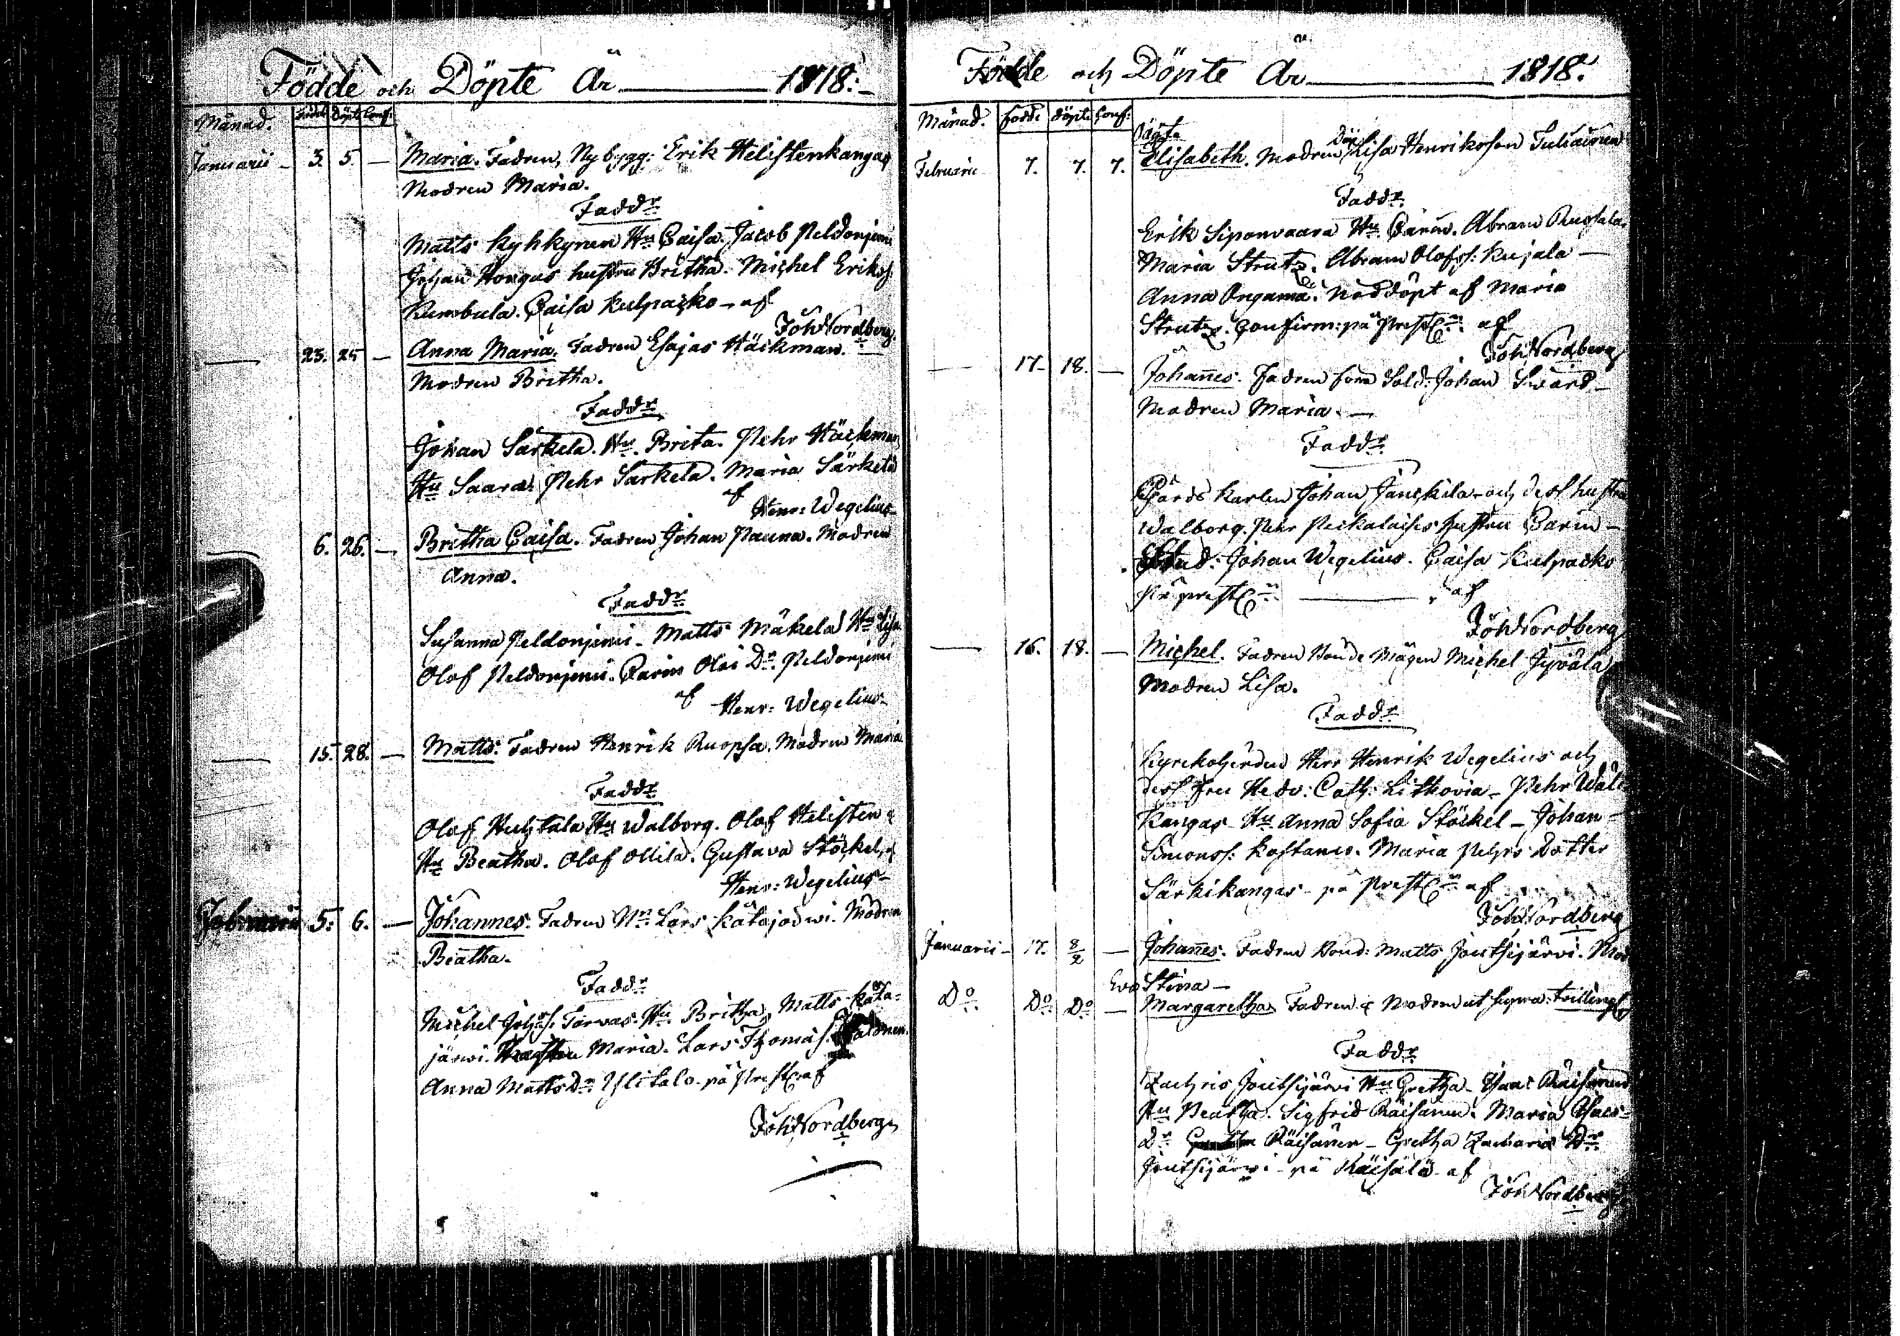 Födde och Döpte År 1818.
Månad. Född Döpte Conf:
Januarii 3. 5. — Maria. Fadren, Nybygg: Erik Helistenkangas
Modren Maria.
Faddr
Matts Kyhkynen Hu Caisa. Jacob Peldoniemi
Johan Kongas hustru Britha. Michel Eriks:
Kumbula. Caisa Kulpacko — af
Joh Nordberg
— 23. 25 — Anna Maria. Fadren Esajas Häckman.
Modren Britha.
Faddr
Johan Särkelä. Hu. Brita. Pehr Häckman
Hu Saara. Pehr Särkelä. Maria Särkelä
af
Henr: Wegelius
— 6. 26. — Britha Caisa. Fadren Johan Pauna. Modren
Anna.
Faddr
Susanna Peldoniemi — Matts Mäkelä Hu Lisa
Olof Peldoniemi. Carin Olai Dr. Peldoniemi
af
Henr: Wegelius
— 15. 28. — Matts. Fadren Henrik Ruopsa. Modren Maria
Faddr
Olof Huhtala Hu Walborg. Olof Helisten
Hu Beatha. Olof Ollila. Gustava Stöckel, af
Henr: Wegelius
Februarii 5. 6. — Johannes. Fadren Lars Katajärwi. Modren
Beatha.
Faddr
Michel Joh:s: Torvas Hu Britha, Matts Kata-
järwi. Maria. Lars Thomas:
Anna Matts Dr Ylitalo på Prest: af
Joh Nordberg
Födde och Döpte År 1818.
Månad. Född Döpte Conf:
Februarii 7. 7. 7. Oägta Elisabeth. Modren Lisa Henriksson
Faddr
Erik Siponvaara Hu. Carin. Abram Ruotsala.
Maria Strutz. Abram Olofs: Kujala —
Anna Ongamo. Nöddöpt af Maria
Strutz. Confirm: på Prest af
Joh Nordberg
— 17 — 18. — Johannes. Fadren form Sold: Johan Swärd —
Modren Maria. —
Faddr
Gårds Karlen Johan Jänckälä och dess hustru
Walborg. Pehr hustru Carin —
Stud: Johan Wegelius. Caisa Kulpacko
På prest — af
Joh Nordberg
— 16. 18. — Michel. Fadren Bonde Mågen Michel Jyvälä
Modren Lisa.
Faddr
Kyrckoherden Herr Henrik Wegelius och
dess fru Hedv: Cath: Lithovia — Pehr Wäl-
kangas — Hu Anna Sofia Stöckel — Johan —
Simonss: Kostamo. Maria Pehrs Dotter
Särkikangas — på Prest af
Joh Nordberg
Januarii — 17. 8/2 — Johannes. Fadren Bond: Matts Joutsijärvi. Mod
Stina —
Do Do Do — Margaretha Fadren & Modren ut supra: tvillingar
Faddr
Zachris Joutsijärvi Hu Gretha — Isac Räisänen
Hu Beatha. Sigfrid Räisänen. Maria Isacs
Dr Räisänen — Gretha Zacharias Dr
Joutsijärvi — på Räisälä af
Joh Nordberg